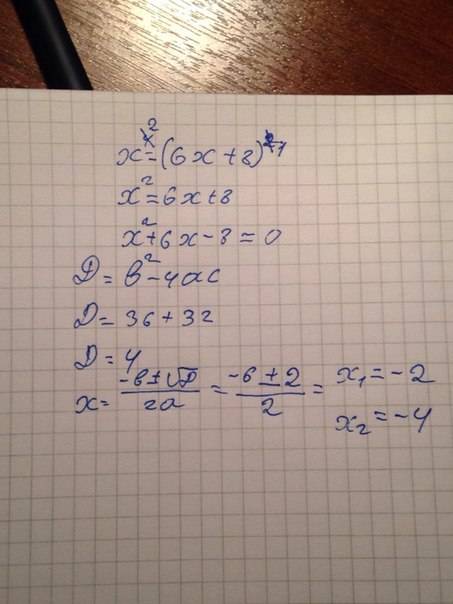 x² = (6x+8)¹
x² = 6x+8
x²+6x-8=0
D = b²-4ac
D = 36+32
D = 4
x = (-b±√D)/2a = (-6±2)/2 = x₁ = -2
x₂ = -4